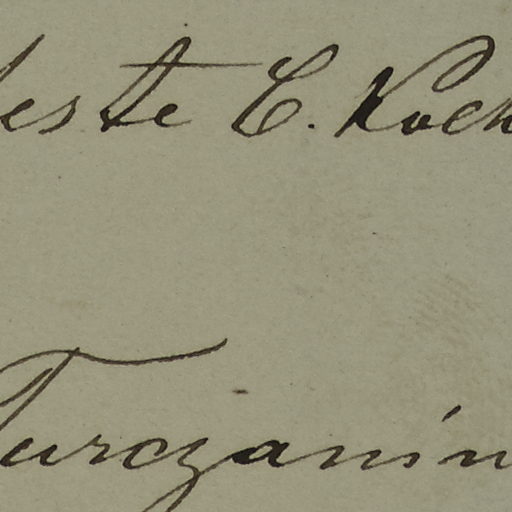 este C. Koch
Turczanin